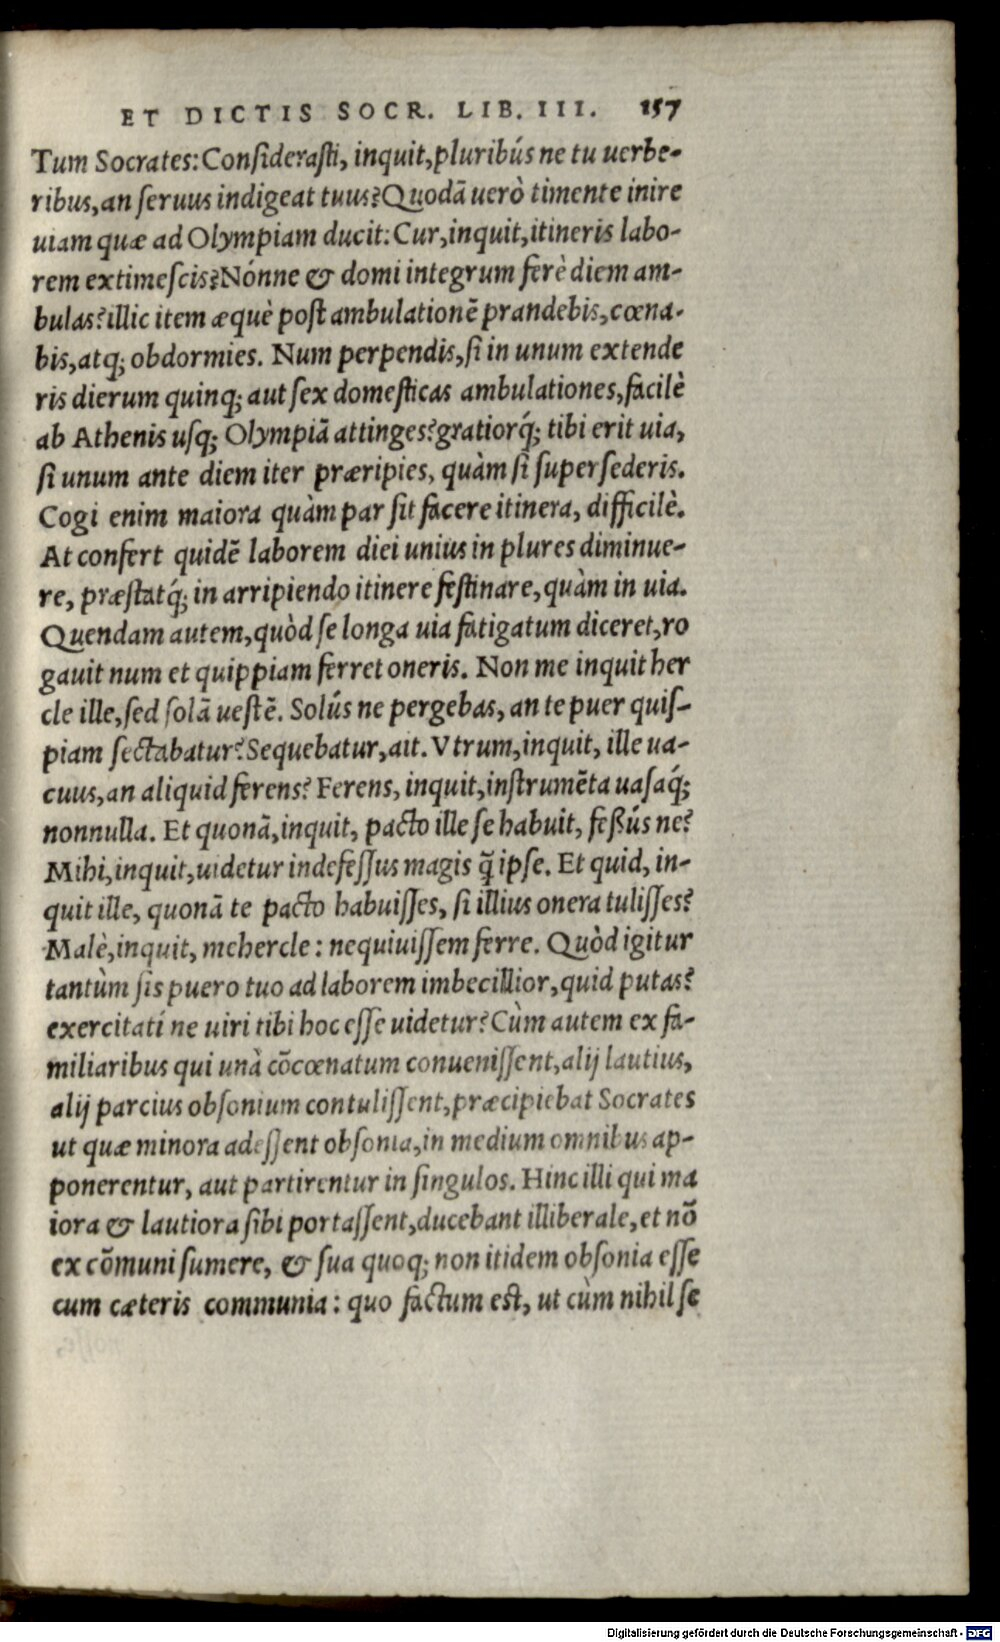 ET DICTIS SOCR. LIB. III. 157
Tum Socrates: Considerasti, inquit, pluribús ne tu uerbe-
ribus, an seruus indigeat tuus? Quodā uerò timente inire
uiam quæ ad Olympiam ducit: Cur, inquit, itineris labo-
rem extimescis? Nónne & domi integrum ferè diem am-
bulas? illic item æquè post ambulationē prandebis, cœna-
bis, atq; obdormies. Num perpendis, si in unum extende
ris dierum quinq; aut sex domesticas ambulationes, facilè
ab Athenis usq; Olympiā attinges? gratiorq́; tibi erit uia,
si unum ante diem iter præripies, quàm si supersederis.
Cogi enim maiora quàm par sit facere itinera, difficilè.
At confert quidē laborem diei unius in plures diminue-
re, præstatq́; in arripiendo itinere festinare, quàm in uia.
Quendam autem, quòd se longa uia fatigatum diceret, ro
gauit num et quippiam ferret oneris. Non me inquit her
cle ille, sed solā uestē. Solús ne pergebas, an te puer quis-
piam sectabatur? Sequebatur, ait. Vtrum, inquit, ille ua-
cuus, an aliquid ferens? Ferens, inquit, instrumēta uasaq́;
nonnulla. Et quonā, inquit, pacto ille se habuit, feßús ne?
Mihi, inquit, uidetur indefessus magis q̄ ipse. Et quid, in-
quit ille, quonā te pacto habuisses, si illius onera tulisses?
Malè, inquit, mehercle: nequiuissem ferre. Quòd igitur
tantùm sis puero tuo ad laborem imbecillior, quid putas?
exercitati ne uiri tibi hoc esse uidetur? Cùm autem ex fa-
miliaribus qui unà cōcœnatum conuenissent, alij lautius,
alij parcius obsonium contulissent, præcipiebat Socrates
ut quæ minora adessent obsonia, in medium omnibus ap-
ponerentur, aut partirentur in singulos. Hinc illi qui ma
iora & lautiora sibi portassent, ducebant illiberale, et nō
ex cōmuni sumere, & sua quoq; non itidem obsonia esse
cum cæteris communia: quo factum est, ut cùm nihil se
Digitalisierung gefördert durch die Deutsche Forschungsgemeinschaft - DFG